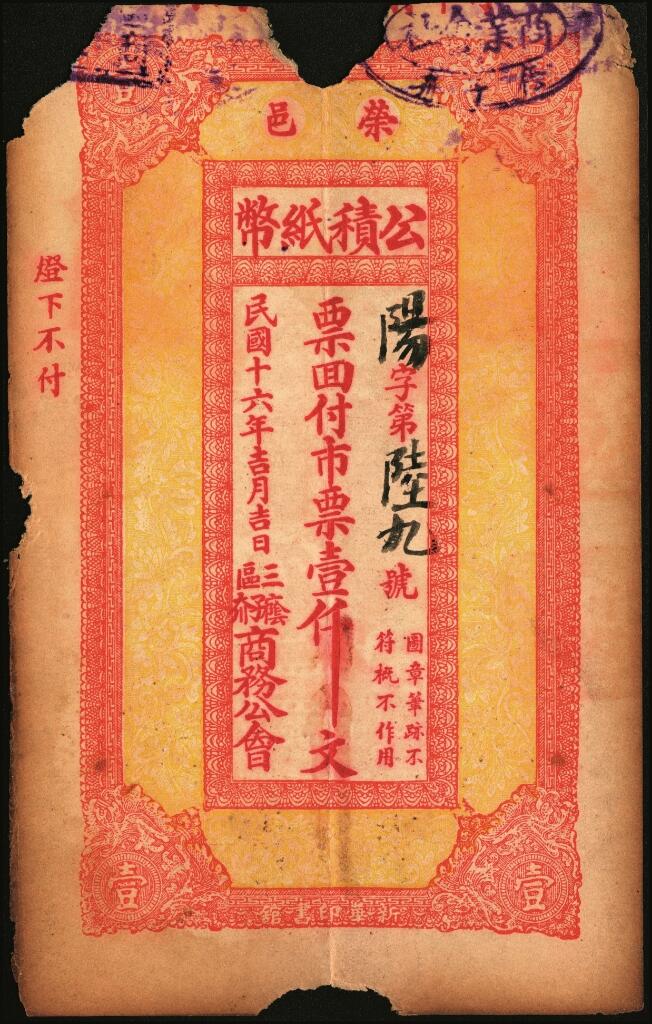 商業
榮邑
公積紙幣
陽字第陸九號
圖章筆跡不
符概不作用
票囬付市票壹仟文
民國十六年吉月吉日
三區
商務公會
燈下不付
壹
壹
壹
新華印書館